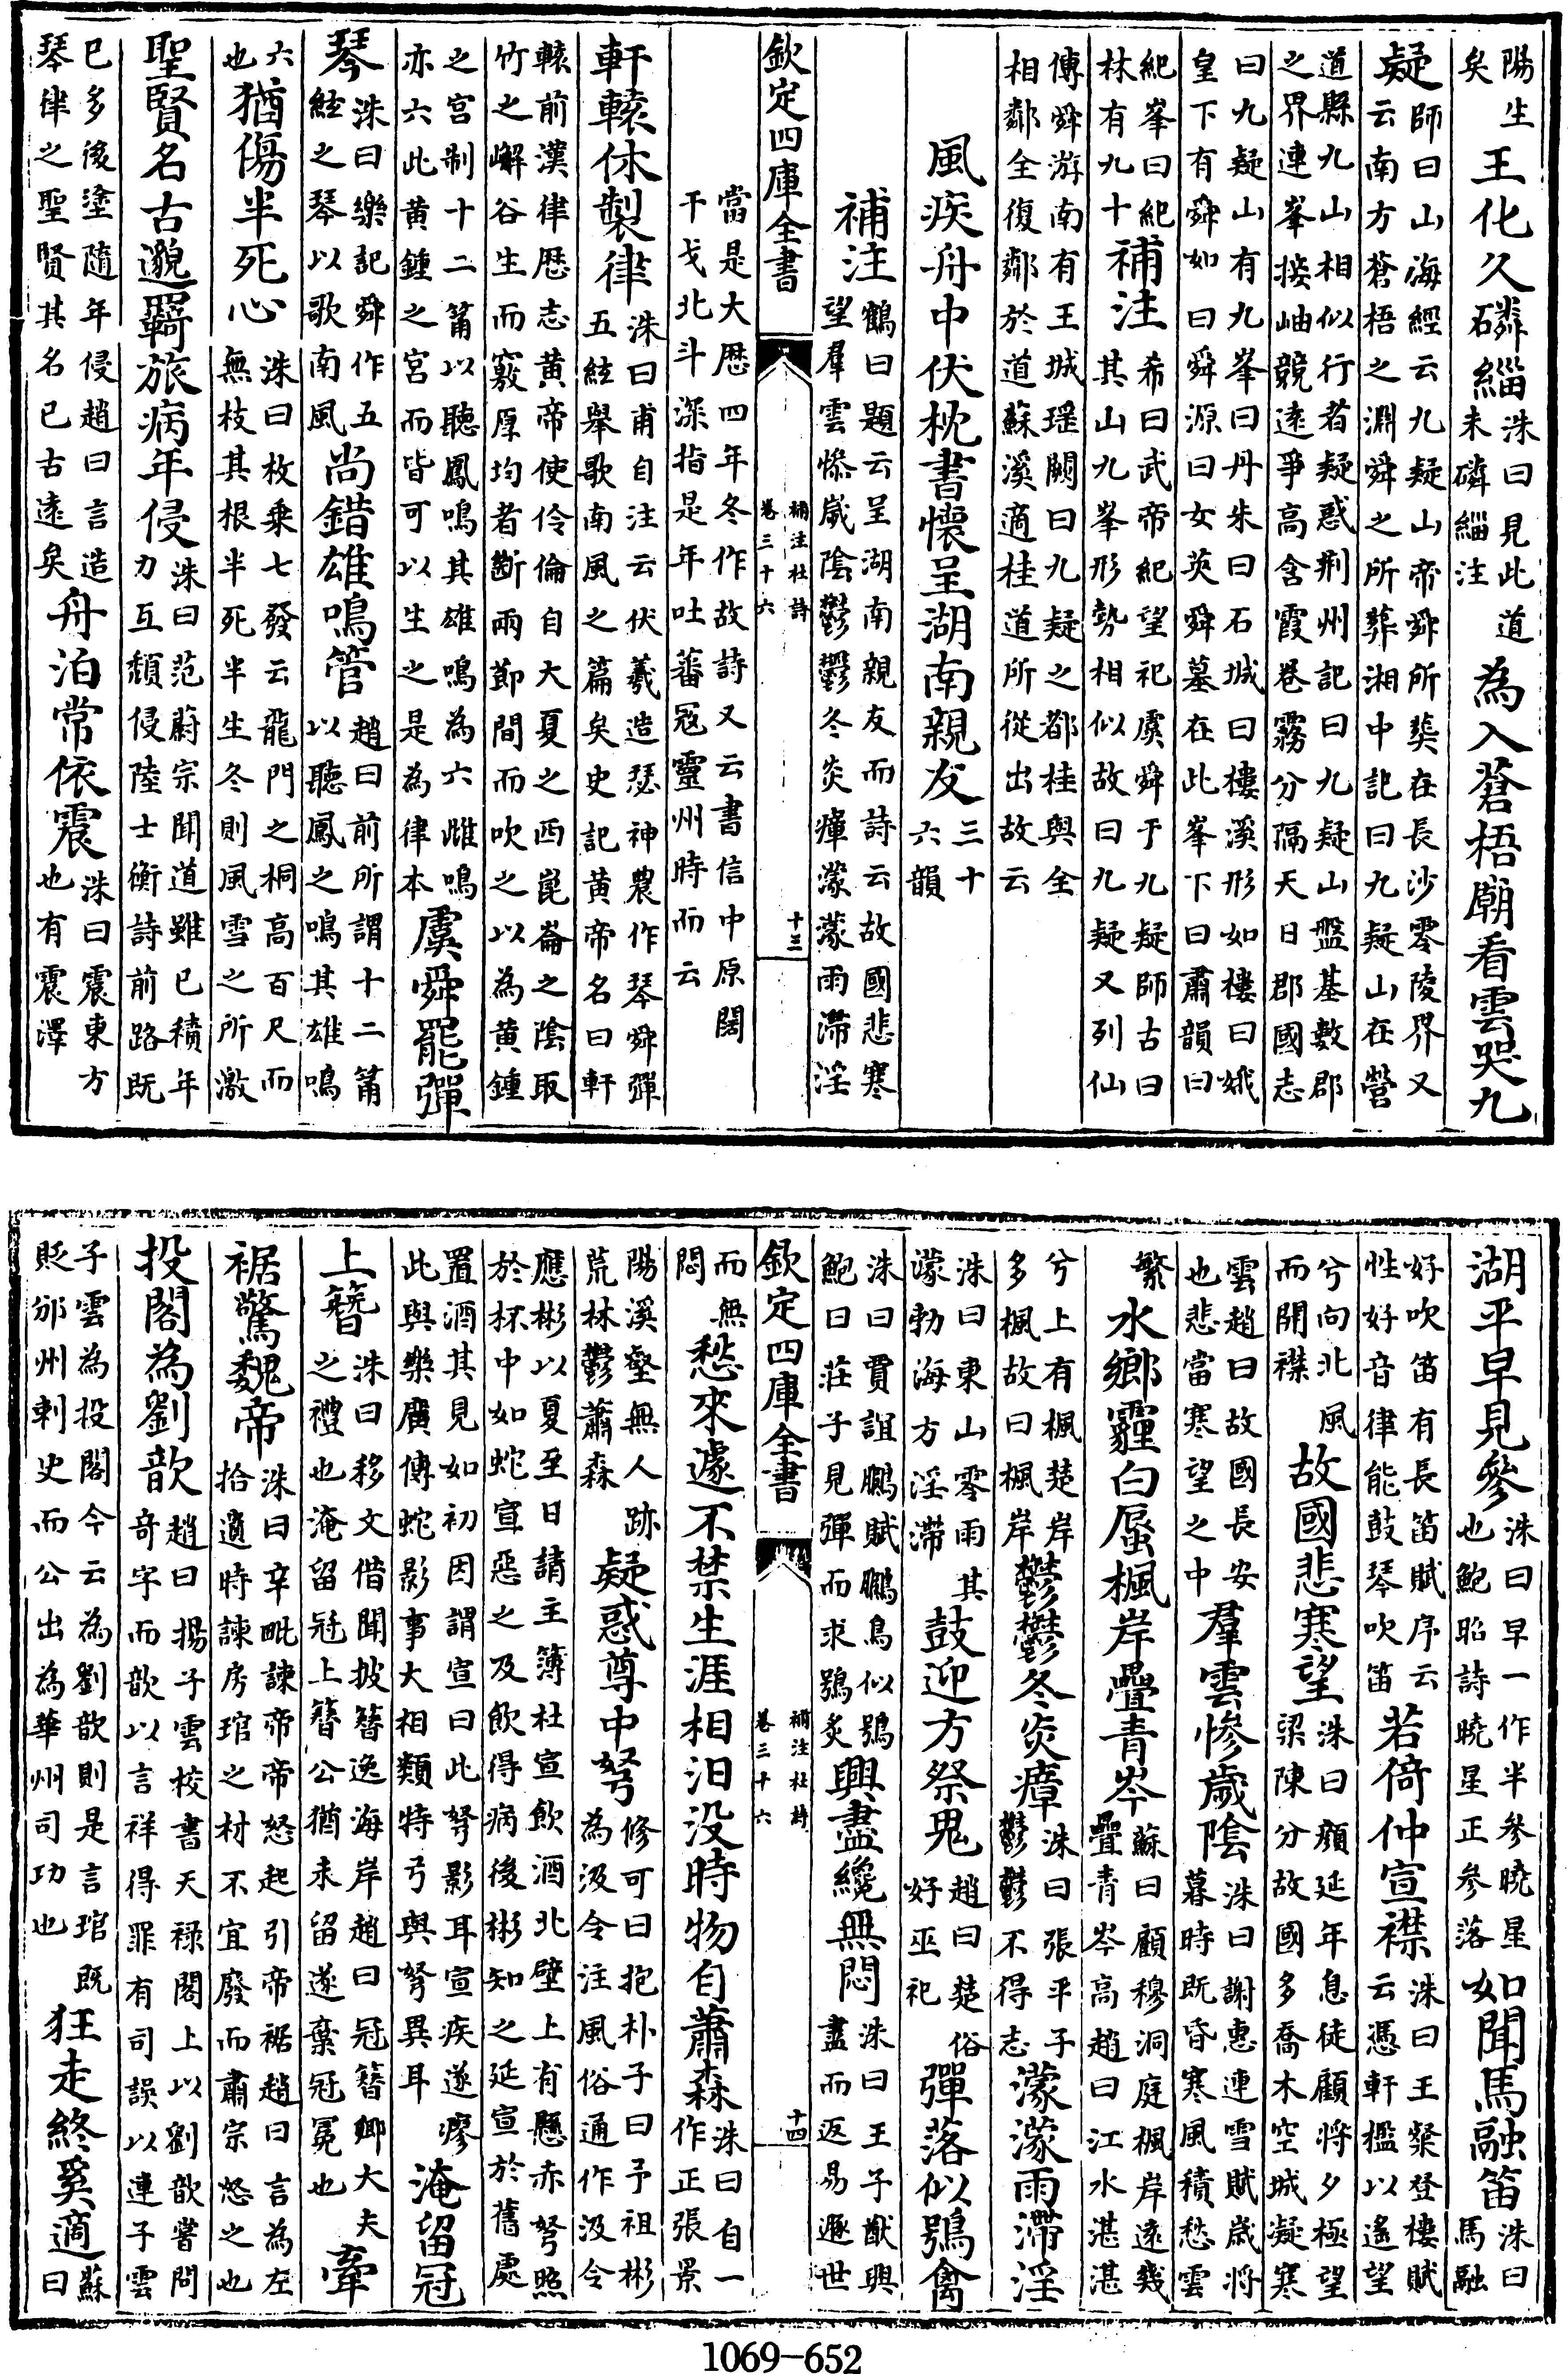 陽生矣王化久磷緇洙曰見此道未磷緇注為入蒼梧廟看雲哭九
疑師曰山海經云九疑山帝舜所葬在長沙零陵界又云南方蒼梧之淵舜之所葬湘中記曰九疑山在營
道縣九山相似行者疑惑荆州記曰九疑山盤基數郡之界連峯接岫競逺爭高含霞卷霧分隔天日郡國志
曰九疑山有九峯曰丹朱曰石城曰樓溪形如樓曰娥皇下有舜如曰舜源曰女英舜墓在此峯下曰蕭韻曰
紀峯曰紀林有九十補注希曰武帝紀望祀虞舜于九疑師古曰其山九峯形勢相似故曰九疑又列仙
傳舜游南有王城瑶闕曰九疑之都桂與全相鄰全復鄰於道蘇溪適桂道所從出故云
風疾舟中伏枕書懷呈湖南親友三十六韻
補注鶴曰題云呈湖南親友而詩云故國悲寒望羣雲慘嵗陰鬱鬱冬炎瘴濛濛雨滯淫
欽定四庫全書 補注杜詩卷三十六 十三
當是大厯四年冬作故詩又云書信中原闊干戈北斗深指是年吐蕃宼靈州時而云
軒轅休製律洙曰甫自注云伏羲造瑟神農作琴舜彈五絃舉歌南風之篇矣史記黄帝名曰軒
轅前漢律厯志黄帝使伶倫自大夏之西崑崙之陰取竹之嶰谷生而竅厚均者斷兩節間而吹之以為黄鍾
之宫制十二筩以聽鳳鳴其雄鳴為六雌鳴亦六此黄鍾之宫而皆可以生之是為律本虞舜罷彈
琴洙曰樂記舜作五絃之琴以歌南風尚錯雄鳴管趙曰前所謂十二筩以聽鳳之鳴其雄鳴
六也猶傷半死心洙曰枚乗七發云龍門之桐高百尺而無枝其根半死半生冬則風雪之所激
聖賢名古邈羇旅病年侵洙曰范蔚宗聞道雖已積年力互頽侵陸士衡詩前路既
已多後塗隨年侵趙曰言造琴律之聖賢其名已古逺矣舟泊常依震洙曰震東方也有震澤
湖平早見參洙曰早一作半參曉星也鮑昭詩曉星正參落如聞馬融笛洙曰馬融
好吹笛有長笛賦序云性好音律能鼓琴吹笛若倚仲宣襟洙曰王粲登樓賦云憑軒檻以遙望
兮向北風而開襟故國悲寒望洙曰顔延年息徒顧將夕極望梁陳分故國多喬木空城凝寒
雲趙曰故國長安也悲當寒望之中羣雲慘歲陰洙曰謝惠連雪賦歲將暮時既昏寒風積愁雲
繁水鄉霾白蜃楓岸疊青岑蘇曰顧穆洞庭楓岸遠㡬疊青岑高趙曰江水湛湛
兮上有楓楚岸多楓故曰楓岸鬱鬱冬炎瘴洙曰張平子鬱鬱不得志濛濛雨滯淫
洙曰東山零雨其濛勃海方淫滯鼓迎方祭鬼趙曰楚俗好巫祀彈落似鴞禽
洙曰賈誼鵩賦鵩鳥似鴞鮑曰莊子見彈而求鴞炙興盡纔無悶洙曰王子猷興盡而返易遯世
欽定四庫全書 補注杜詩卷三十六 十四
而無悶愁來遽不禁生涯相汨没時物自蕭森洙曰自一作正張景
陽溪壑無人跡荒林鬱蕭森疑惑尊中弩修可曰抱朴子曰予祖彬為汲令注風俗通作汲令
應彬以夏至日請主簿杜宣飲酒北壁上有懸赤弩照於杯中如蛇宣惡之及飲得病後彬知之延宣於舊處
置酒其見如初因謂宣曰此弩影耳宣疾遂瘳此與樂廣傳蛇影事大相類特弓與弩異耳淹留冠
上簪洙曰移文借聞披簪逸海岸趙曰冠簪卿大夫之禮也淹留冠上簪公猶未留遂棄冠冕也牽
裾驚魏帝洙曰辛毗諫帝帝怒起引帝裾趙曰言為左拾遺時諫房琯之材不宜廢而肅宗怒之也
投閣為劉歆趙曰揚子雲校書天禄閣上以劉歆嘗問竒字而歆以言祥得罪有司誤以連子雲
子雲為投閣今云為劉歆則是言琯既貶邠州刺史而公出為華州司功也狂走終奚適蘇曰
1069-652